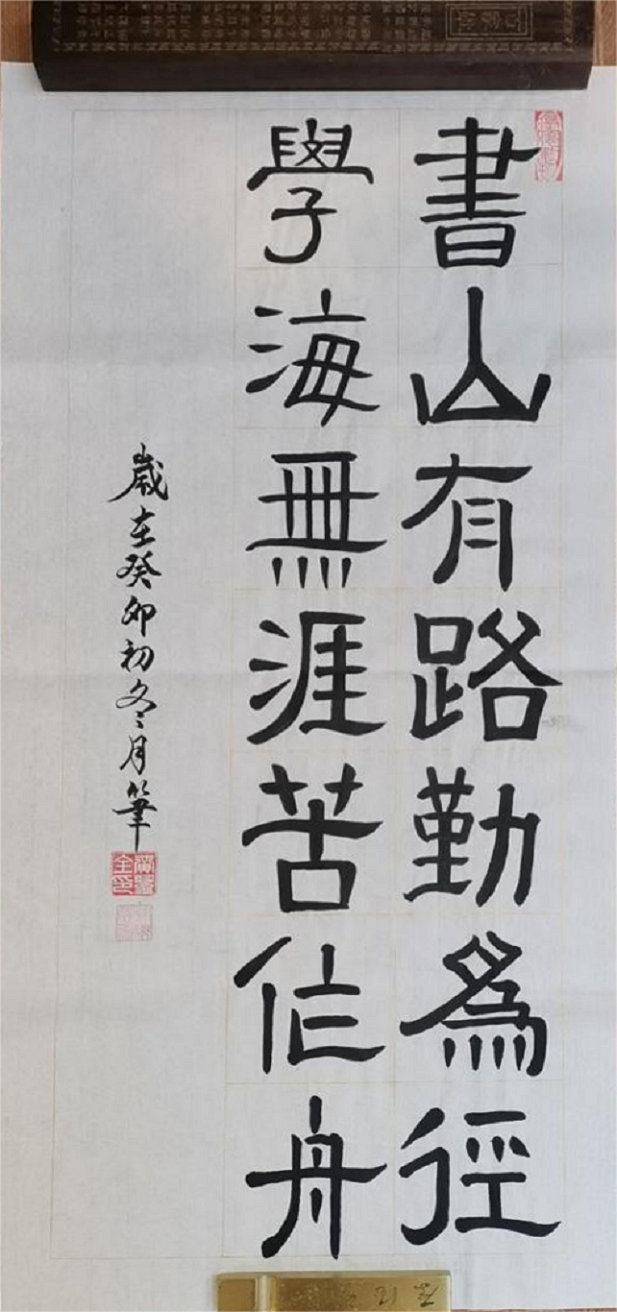 書山有路勤為徑
學海無涯苦作舟
歲在癸卯初冬月筆